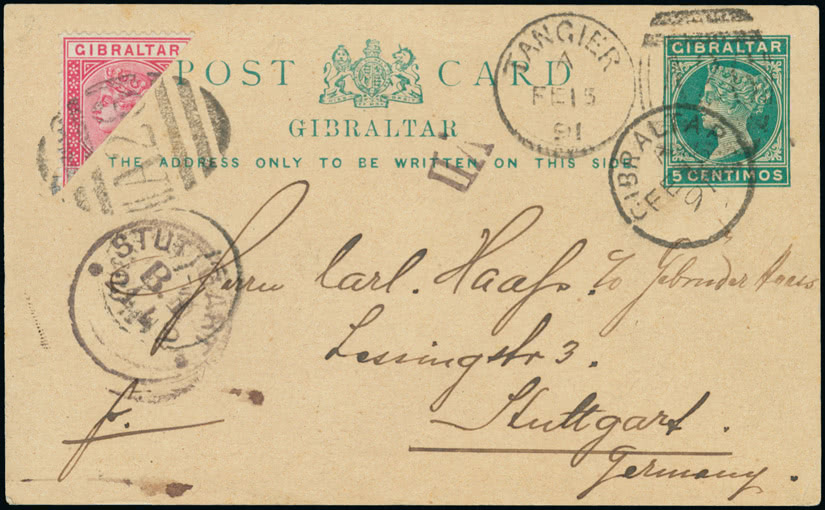 GIBRALTAR
POST CARD
GIBRALTAR
THE ADDRESS ONLY TO BE WRITTEN ON THIS SIDE
GIBRALTAR
5 CENTIMOS
TANGIER
A
FE 13
91
GIBRALTAR
FE
91
A26
STUTTGART
B.
Herrn Carl. Haafs. c/o Gebruder Haas
Lessingstr 3.
Stuttgart.
Germany.